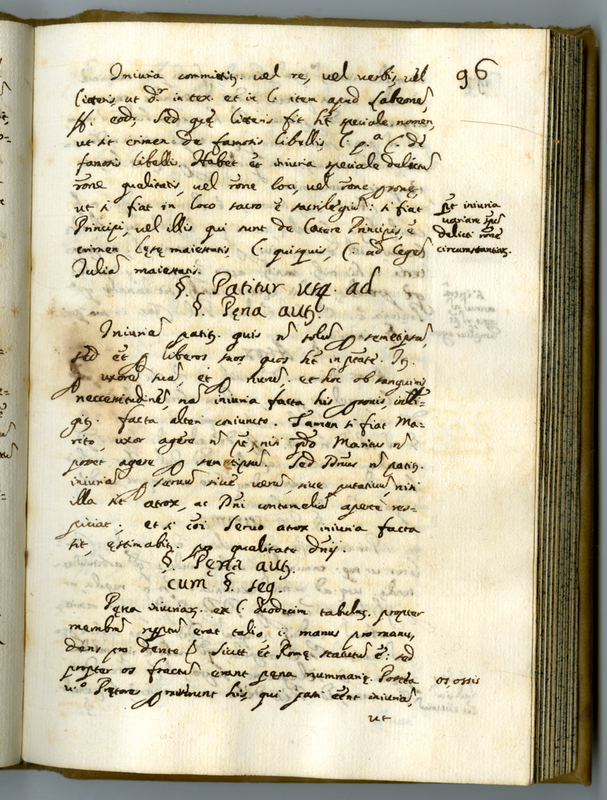 96
Iniuria committitz. vel re, vel verbis, vel
litteris ut dr. in tex. et in l. item apud Labeonem
ff. eod. sed quę litteris fit ht speciale nomen,
ut sit crimen de famosis libellis l. p.a C. de
famosis libelli. Habet et iniuria speciale delictu
rõne qualitatis, vel rõne loci, vel rõne pronę,
ut si fiat in loco sacro ẽ sacrilegiu: si fiat
Principi, vel illis qui sunt de latere Principis, ẽ
crimen lęsę maiestatis, l. quisquis, C. ad legem
Iulia maiestatis.
pt iniuria
variare
delicti rõne
circumstantię.
§. Patitur usq. ad
§. Pęna autz.
Iniuria patitz. quis n solu p semetipsu,
sed et p liberos suos quos ht in ptate. Itz.
p uxore sua, et p nuru. et hoc ob sanguinis
neccessitudine, na iniuria facta his pronis, intelli=
gitz. facta alteri coniuncto. Tamen si fiat Ma=
rito, uxor agere n pt, nisi qdo Maritus n
posset agere p semetipsu. Sed Dnus n patitz.
iniuria p servu sive veru, sive putatiuu, nisi
illa sit atrox, ac Dni contumelia aperte res=
piciat; et si cõi servo atrox iniuria facta
sit, ęstimabitz. pro qualitate dnj.
§. Pęna autz.
cum §. seq.
Pęna iniuriarz. ex l. duodecim tabulis, propter
membru ruptu erat talio, i. manus pro manu,
dens pro dente p. sicut et Romę statutu ẽ: sed
propter os fractu erant pęna nummarię. Postea
os ossis
v.o Pretores pmiserunt his, qui passi eent iniuria,
ut